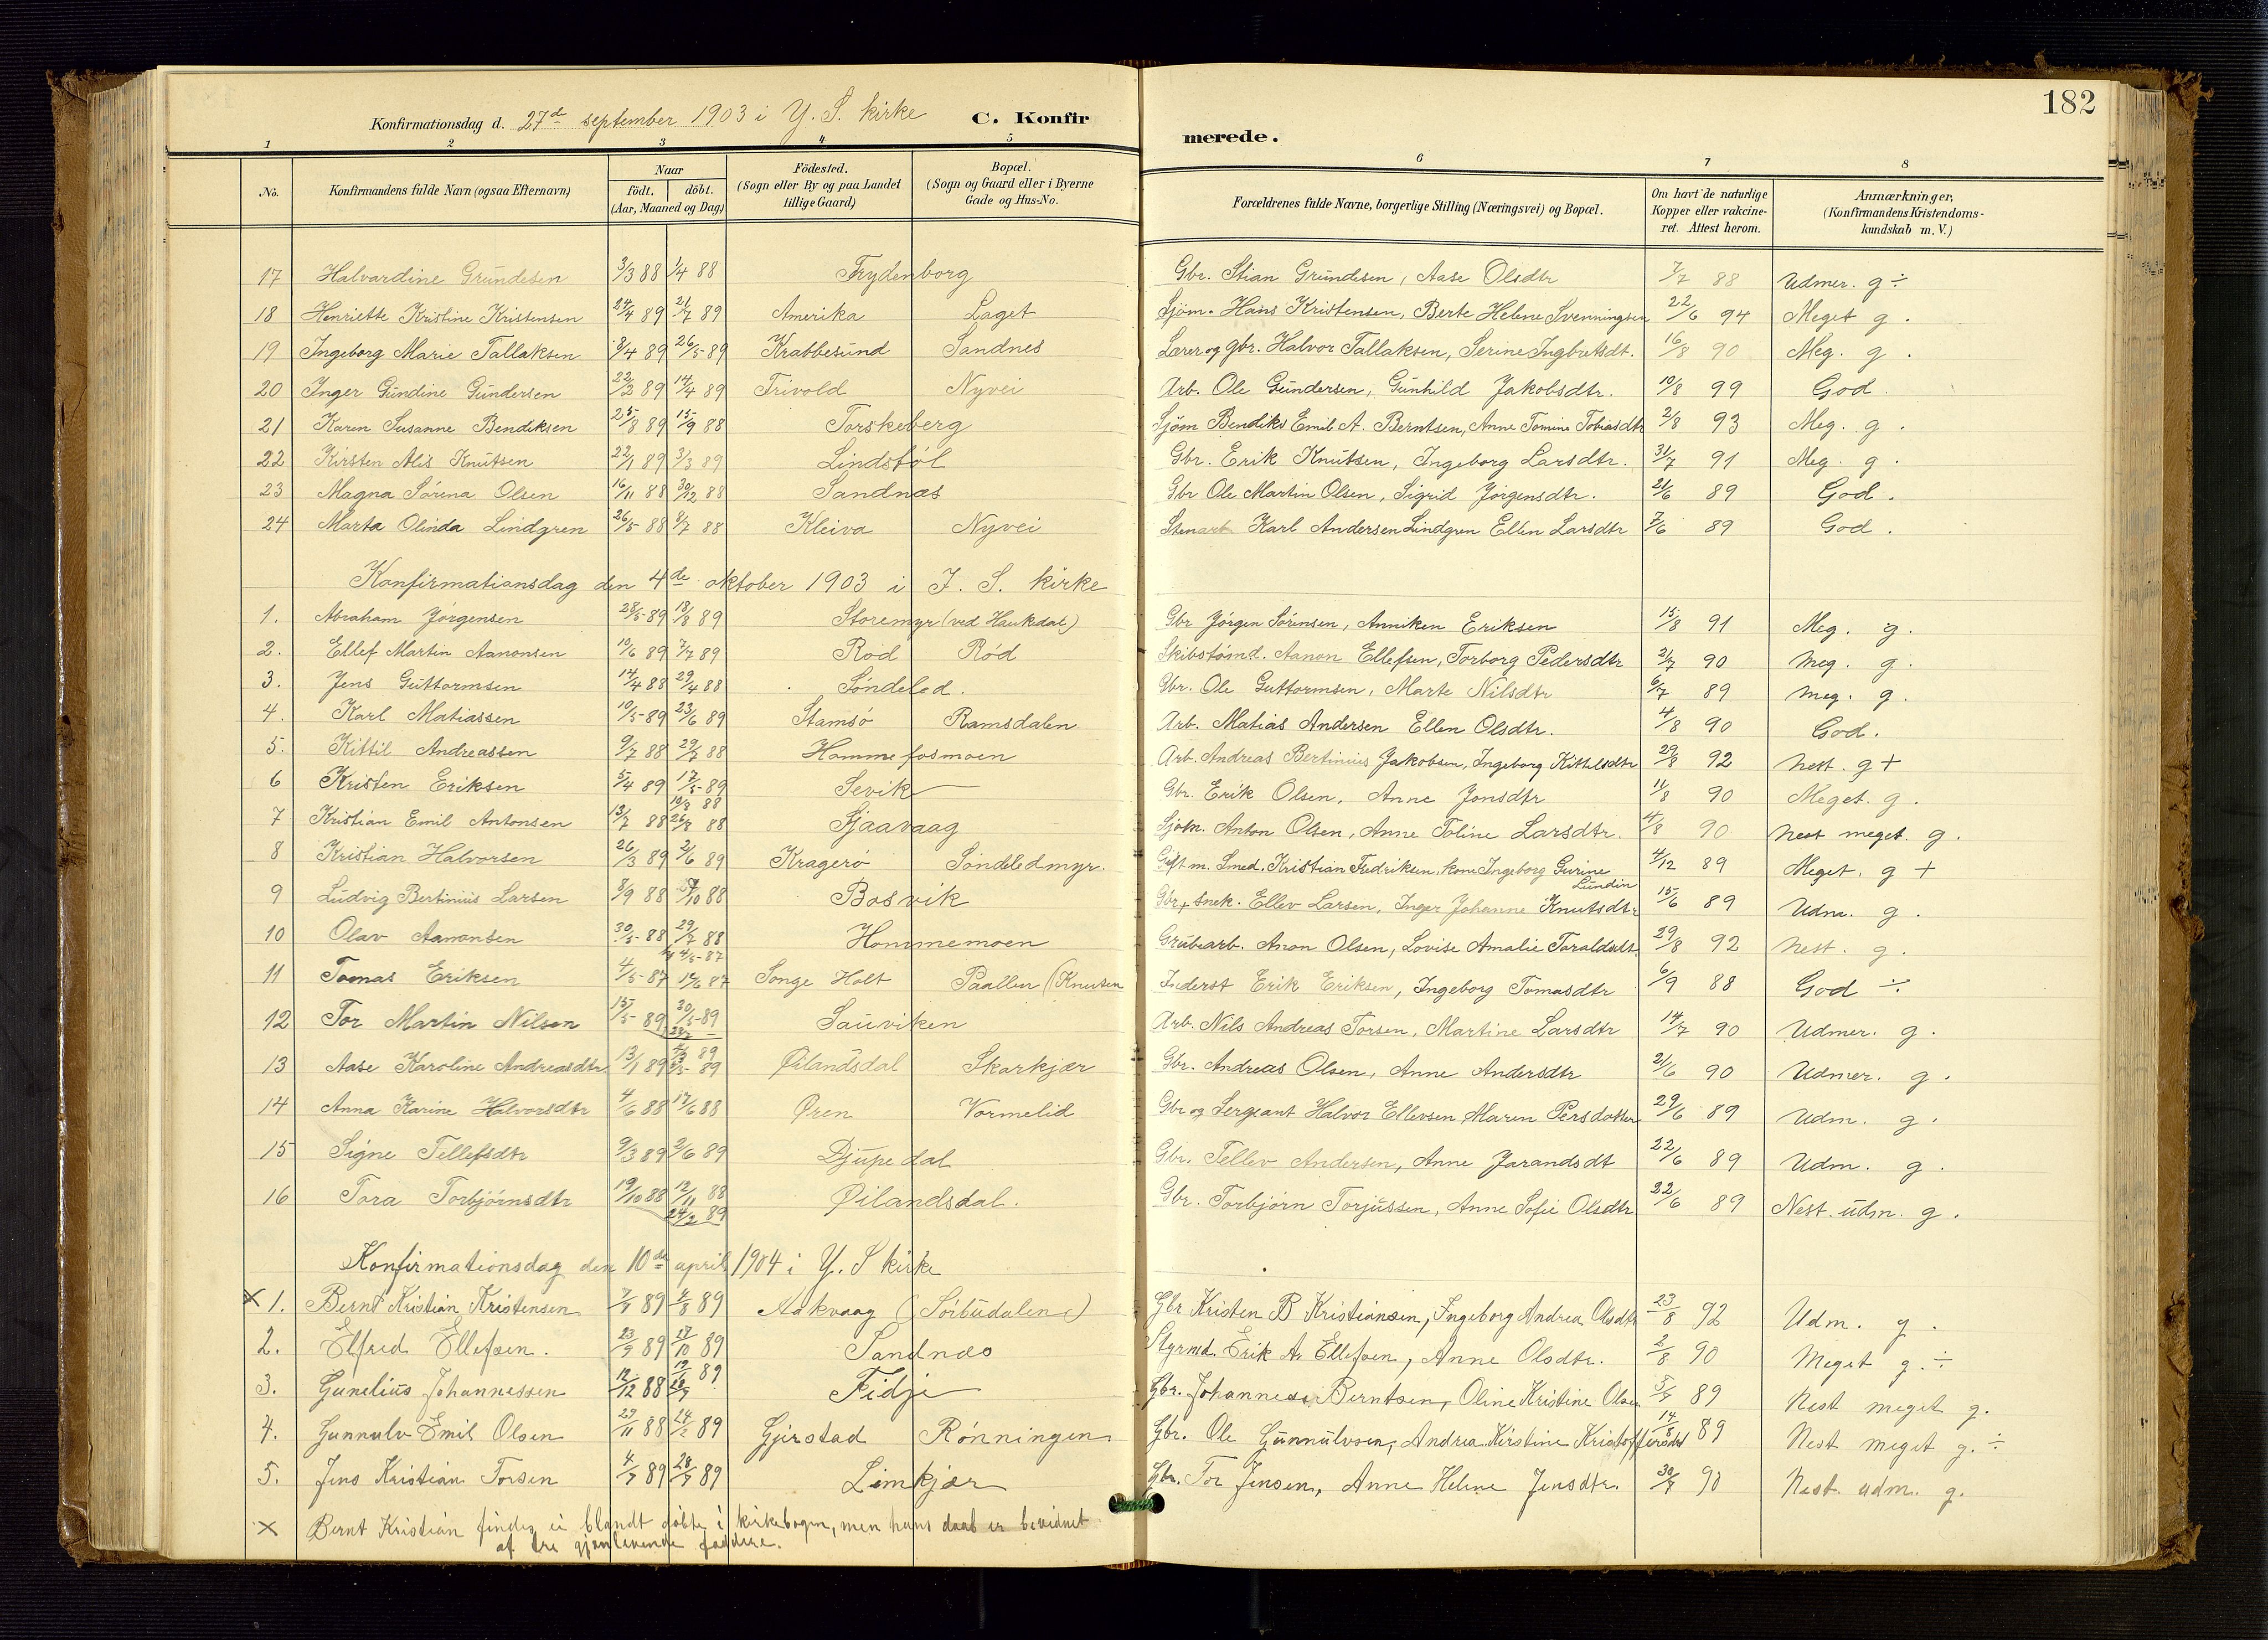 182
Konfirmationsdag d. 27de september 1903 i Y. S. kirke C. Konfir merede.
1 2 3 4 5 6 7 8
No. Konfirmandens fulde Navn (ogsaa Efternavn) Naar födt. döbt. (Aar, Maaned og Dag) Födested. (Sogn eller By og paa Landet tillige Gaard) Bopæl. (Sogn og Gaard eller i Byerne Gade og Hus-No. Forældrenes fulde Navne, borgerlige Stilling (Næringsvei) og Bopæl. Om havt de naturlige Kopper eller vakcineret. Attest herom. Anmærkninger, (Konfirmandens Kristendomskundskab m. V.)
17 Halvardine Grundesen 3/3 88 1/4 88 Frydenborg Gbr. Stian Grundesen, Aase Olsdtr 7/7 88 Udmer. g ÷
18 Henriette Kristine Kristensen 24/4 89 21/7 89 Amerika Laget Sjøm. Hans Kristensen, Berte Helene Svenningsen 22/6 94 Meget g.
19 Ingeborg Marie Tallaksen 8/4 89 26/5 89 Krabbesund Sandnes Lærer og gbr. Halvor Tallaksen, Serine Ingbretsdt. 16/8 90 Meg. g.
20 Inger Gundine Gundersen 22/3 89 14/4 89 Trivold Nyvei Arb. Ole Gundersen, Gunhild Jakobsdtr. 10/8 99 God
21 Karen Susanne Bendiksen 25/8 89 15/9 88 Torskeberg Sjøm Bendiks Emil A. Berntsen, Anne Tomine Tobiasdtr 2/8 93 Meg. g.
22 Kirsten Alis Knutsen 22/1 89 3/3 89 Lindstøl Gbr. Erik Knutsen, Ingeborg Larsdtr. 31/7 91 Meg. g.
23 Magna Sørena Olsen 16/11 88 30/12 88 Sandnæs Gbr Ole Martin Olsen, Sigrid Jørgensdtr. 21/6 89 God.
24 Marta Olinda Lindgren 26/5 88 8/7 88 Kleiva Nyvei Stenarb Karl Andersen Lindgren Ellen Larsdtr 7/6 89 God.
Konfirmationsdag den 4de oktober 1903 i I. S. kirke
1. Abraham Jørgensen 28/5 89 18/8 89 Storemyr (ved Haukdal) Gbr Jørgen Sørensen, Anniken Eriksen 15/8 91 Meg. g.
2. Ellef Martin Aanonsen 10/6 89 7/7 89 Rød Rød Skibstømd. Aanon Ellefsen, Torborg Pedersdtr 2/7 90 Meg. g.
3. Jens Guttormsen 14/4 88 29/4 88 Søndeled. Gbr. Ole Guttormsen, Marte Nilsdtr 6/7 89 Meg. g.
4. Karl Matiassen 10/5 89 23/6 89 Stamsø Ramsdalen Arb. Matias Andersen Ellen Olsdtr. 4/8 90 God.
5. Kittil Andreassen 9/7 88 29/7 88 Hommefosmoen Arb. Andreas Bertinius Jakobsen, Ingeborg Kittelsdtr 29/8 92 Nest. g +
6 Kristen Eriksen 5/4 89 17/5 89 Sevik Gbr. Erik Olsen, Anne Jonsdtr 11/8 90 Meget. g.
7 Kristian Emil Antonsen 13/7 88 19/8 88 26/8 88 Sjaavaag Sjøm. Anton Olsen, Anne Toline Larsdtr. 4/8 90 Nest meget. g.
8 Kristian Halvorsen 26/3 89 2/6 89 Kragerø Søndeledmyr. Gift m. Smed. Kristian Fredriksen, kone Ingeborg Gurine Lundin 4/12 89 Meget. g +
9 Ludvig Bertinius Larsen 8/9 88 7/10 88 Bosvik Gbr + snek. Ellev Larsen, Inger Johanne Knutsdtr 15/6 89 Udm. g.
10 Olav Aanonsen 30/5 88 29/7 88 Hommemoen Grubearb. Anon Olsen, Lovise Amalie Taraldsdt. 29/8 92 Nest. g.
11 Tomas Eriksen 4/5 87 4/5 87 12/6 87 Songe Holt Paallen (Knutsen Inderst Erik Eriksen, Ingeborg Tomasdtr 6/9 88 God ÷
12 Tor Martin Nilsen 15/5 89 30/5 89 Sauviken Arb. Nils Andreas Torsen, Martine Larsdtr 14/7 90 Udmer. g.
13 Aase Karoline Andreasdtr 13/1 89 89 Øilandsdal Skarkjær Gbr. Andreas Olsen, Anne Andersdtr 21/6 90 Udmer. g.
14 Anna Karine Halvorsdtr 4/6 88 17/6 88 Øren Vormelid Gbr og Sergeant Halvor Ellevsen Maren Persdotter 29/6 89 Udm. g.
15 Signe Tellefsdtr 9/3 89 2/6 89 Djupedal Gbr. Tellev Andersen, Anne Jarandsdt 22/6 89 Udm. g.
16 Tora Torbjørnsdtr 19/10 88 12/11 88 24/2 89 Øilandsdal. Gbr. Torbjørn Torjussen, Anne Sofie Olsdtr 22/6 89 Nest udm. g.
Konfirmationsdag den 10de april 1904 i Y. S kirke
× 1. Bernt Kristian Kristensen 7/7 89 4/8 89 Aakvaag (Sørbudalen) Gbr Kristen B Kristiansen, Ingeborg Andrea Olsdtr 23/8 92 Udm. g.
2. Elfred Ellefsen. 23/9 89 27/10 89 Sandnæs Styrmd. Erik A. Ellefsen, Anne Olsdtr. 2/8 90 Meget g. ÷
3. Gunelius Johannessen 12/12 88 89 Fidje Gbr. Johannes Berntsen, Oline Kristine Olsen 5/7 89 Nest meget g.
4. Gunnulv Emil Olsen 29/11 88 24/2 89 Gjerstad Rønningen Gbr. Ole Gunnulvsen, Andrea Kirstine Kristoffersdt 14/8 89 Nest meget g. ÷
5. Jens Kristian Torsen 4/7 89 28/7 89 Limkjær Gbr. Tor Jensen, Anne Helene Jensdtr. 30/7 90 Nest. udm. g.
× Bernt Kristian findes ei blandt døbte i kirkebogen, men hans daab er bevidnet
af tre gjenlevende faddere.